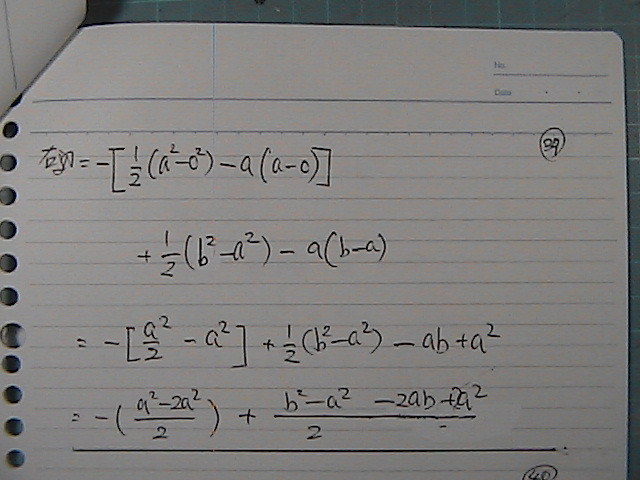 No.
Date
39
右辺 = -[1/2(a²-0²) - a(a-0)]
+ 1/2(b²-a²) - a(b-a)
= -[a²/2 - a²] + 1/2(b²-a²) - ab + a²
= -(a²-2a²/2) + b²-a² -2ab+2a²/2
40